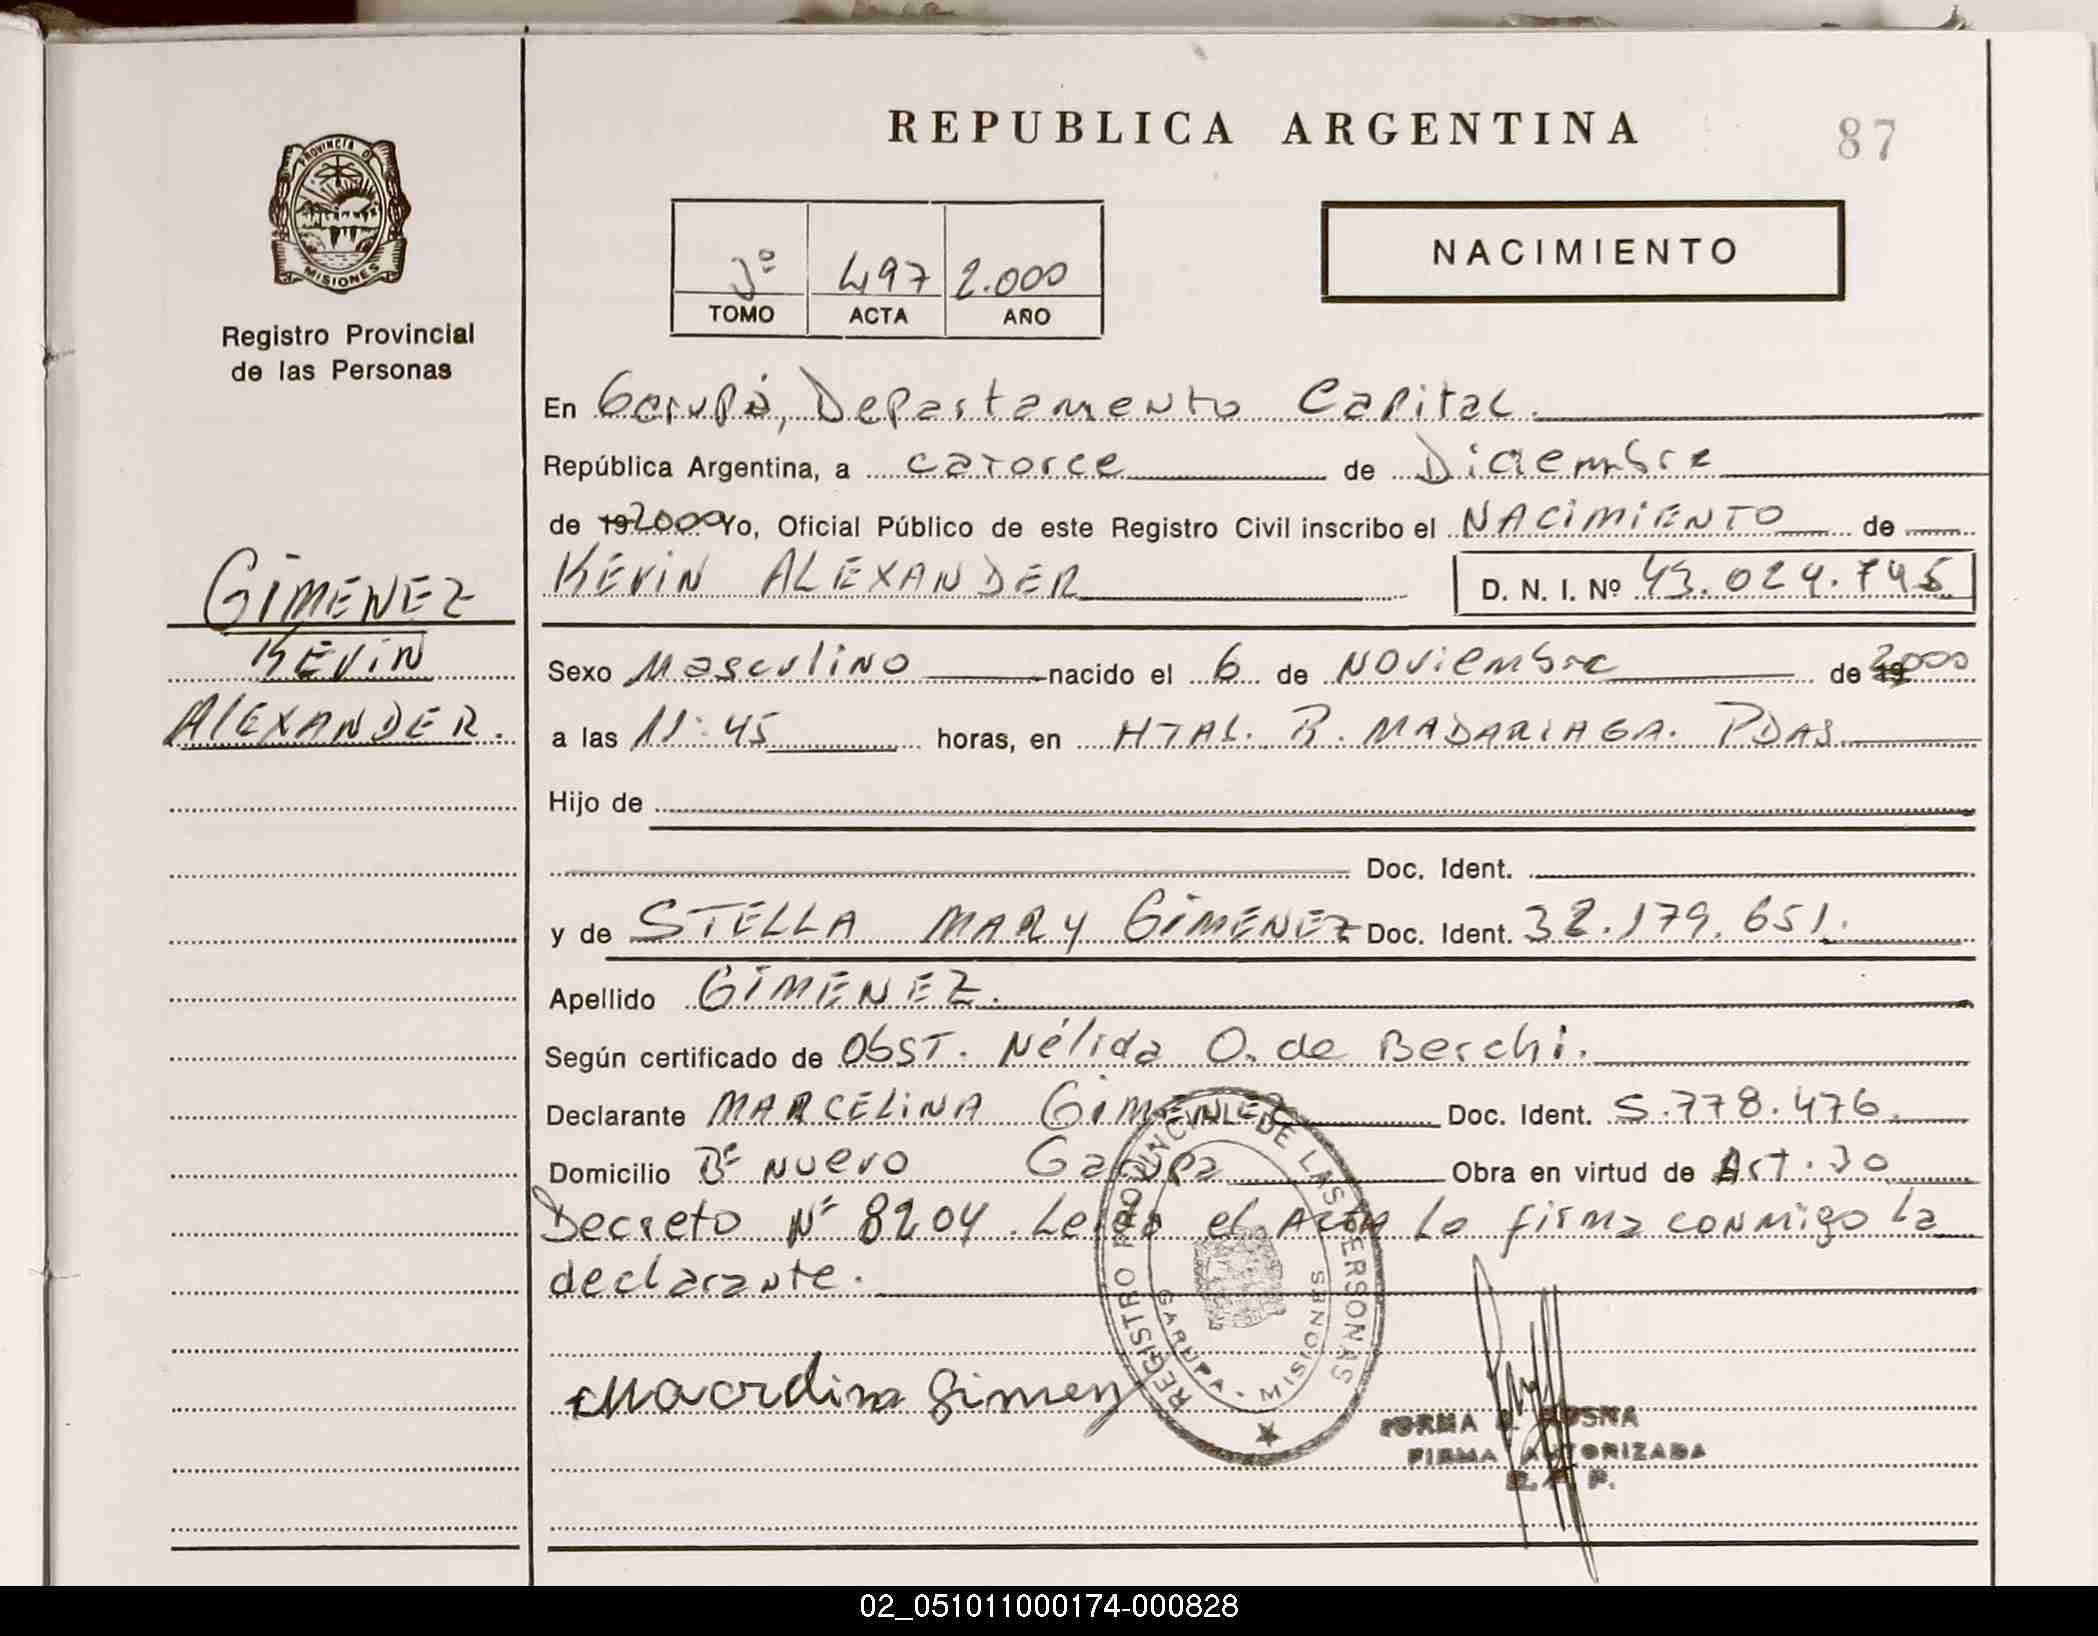 REPUBLICA ARGENTINA
87
PROVINCIA DE
MISIONES
Registro Provincial
de las Personas
NACIMIENTO
3º 497 2.000
TOMO ACTA AÑO
En Garupá, Departamento Capital.
República Argentina, a catorce de Diciembre
de 19 2000 Yo, Oficial Público de este Registro Civil inscribo el NACIMIENTO de
KEVIN ALEXANDER D. N. I. Nº 43.024.745
GIMENEZ
KEVIN
ALEXANDER.
Sexo Masculino nacido el 6 de Noviembre de 19 2000
a las 11:45 horas, en HTAL. R. MADARIAGA. PDAS
Hijo de
Doc. Ident.
y de STELLA MARY GIMENEZ Doc. Ident. 32.179.651.
Apellido GIMENEZ.
Según certificado de Obst. Nélida O. de Berchi.
Declarante MARCELINA GIMENEZ Doc. Ident. 5.778.476.
Domicilio Bº Nuevo Garupa Obra en virtud de Art. 30
Decreto Nº 8204. Leida el Acta La firma conmigo La
declarante.
REGISTRO PROVINCIAL DE LAS PERSONAS
GARUPA - MISIONES
Gimenez
FIRMA AUTORIZADA
02_051011000174-000828